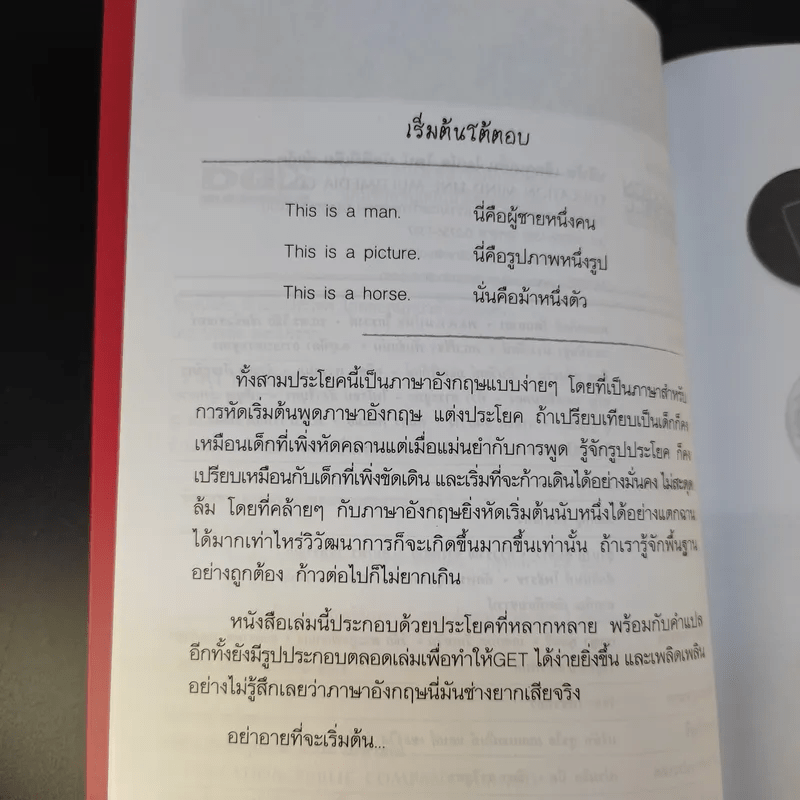 เริ่มต้นโต้ตอบ
This is a man. นี่คือผู้ชายหนึ่งคน
This is a picture. นี่คือรูปภาพหนึ่งรูป
This is a horse. นั่นคือม้าหนึ่งตัว
ทั้งสามประโยคนี้เป็นภาษาอังกฤษแบบง่ายๆ โดยที่เป็นภาษาสำหรับ
การหัดเริ่มต้นพูดภาษาอังกฤษ แต่งประโยค ถ้าเปรียบเทียบเป็นเด็กก็คง
เหมือนเด็กที่เพิ่งหัดคลานแต่เมื่อแม่นยำกับการพูด รู้จักรูปประโยค ก็คง
เปรียบเหมือนกับเด็กที่เพิ่งขัดเดิน และเริ่มที่จะก้าวเดินได้อย่างมั่นคง ไม่สะดุด
ล้ม โดยที่คล้ายๆ กับภาษาอังกฤษยิ่งหัดเริ่มต้นนับหนึ่งได้อย่างแตกฉาน
ได้มากเท่าไหร่วิวัฒนาการก็จะเกิดขึ้นมากขึ้นเท่านั้น ถ้าเรารู้จักพื้นฐาน
อย่างถูกต้อง ก้าวต่อไปก็ไม่ยากเกิน
หนังสือเล่มนี้ประกอบด้วยประโยคที่หลากหลาย พร้อมกับคำแปล
อีกทั้งยังมีรูปประกอบตลอดเล่มเพื่อทำให้GET ได้ง่ายยิ่งขึ้น และเพลิดเพลิน
อย่างไม่รู้สึกเลยว่าภาษาอังกฤษนี่มันช่างยากเสียจริง
อย่าอายที่จะเริ่มต้น...